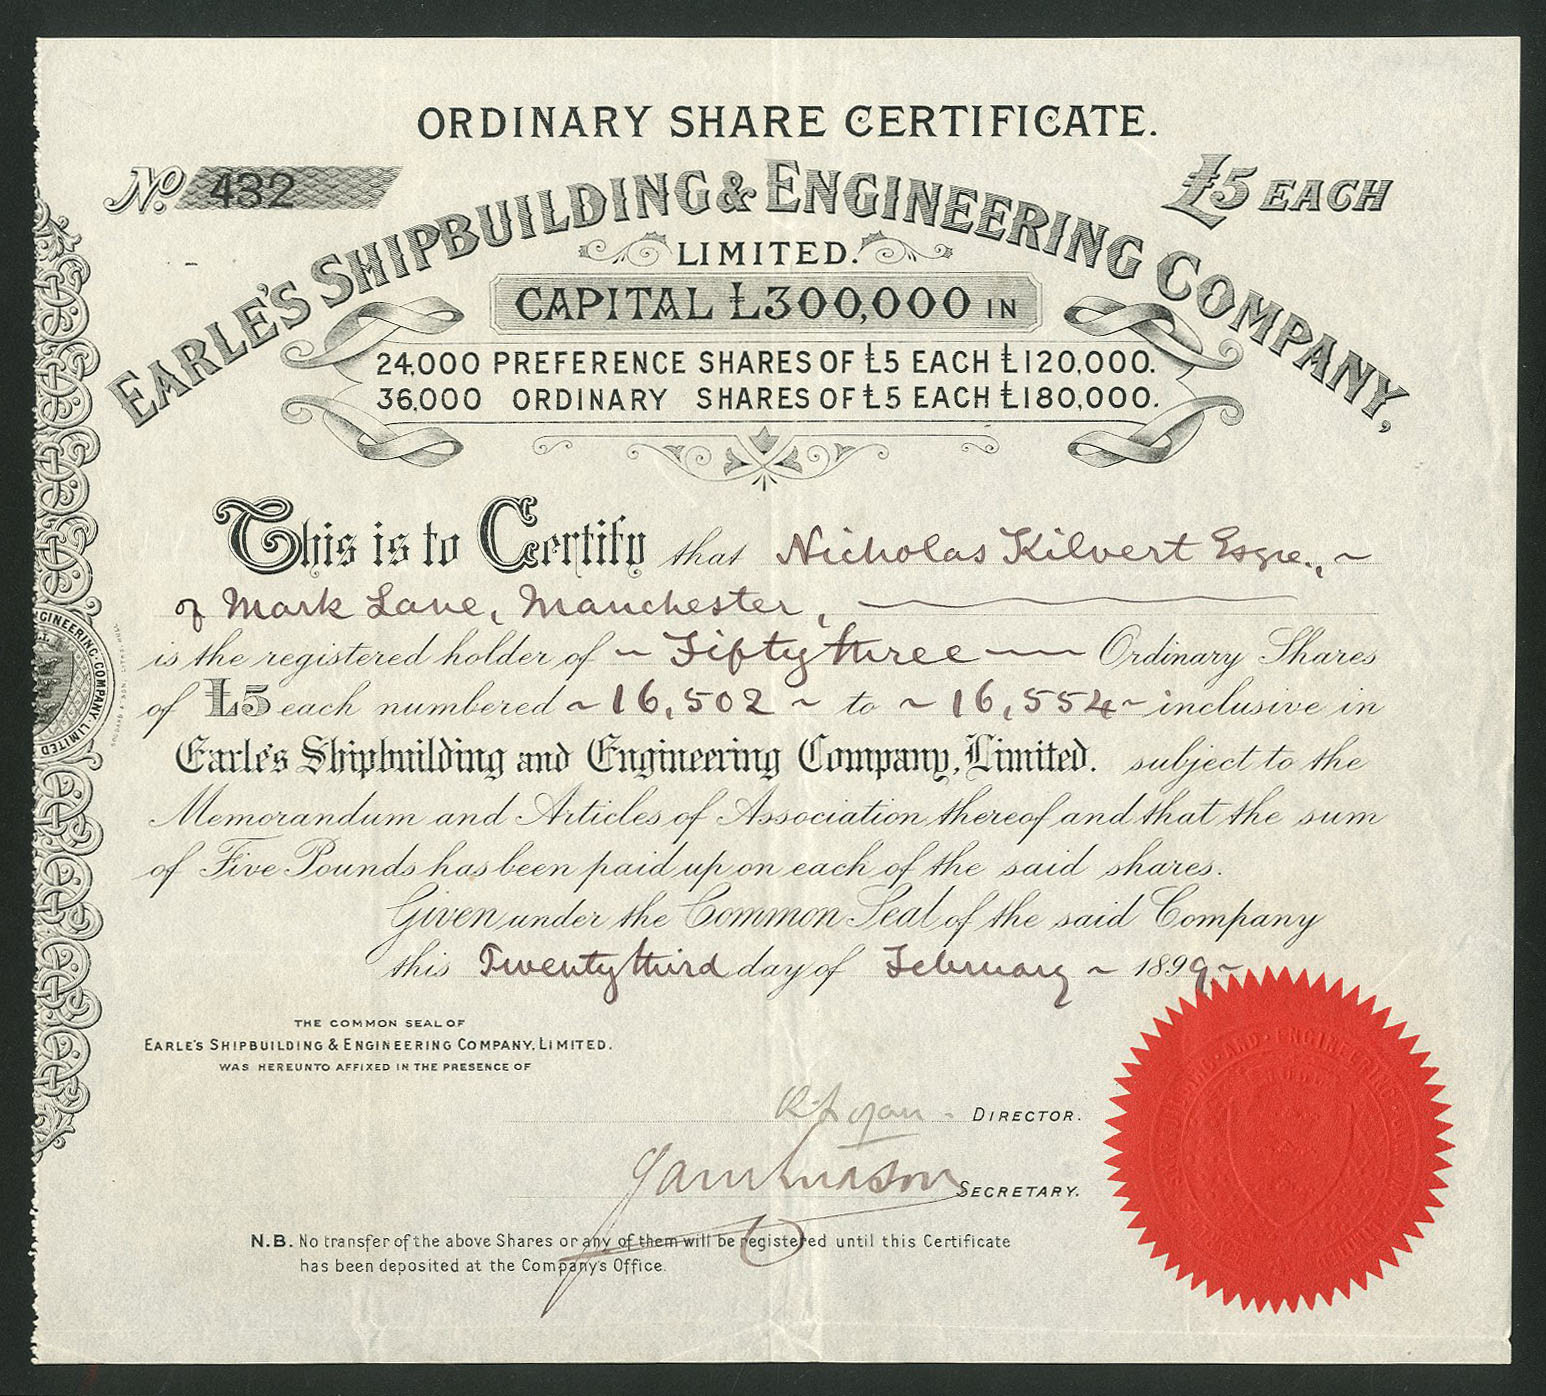 ORDINARY SHARE CERTIFICATE.
No. 432
£5 EACH
EARLE'S SHIPBUILDING & ENGINEERING COMPANY,
LIMITED.
CAPITAL £300,000 IN
24,000 PREFERENCE SHARES OF £5 EACH £120,000.
36,000 ORDINARY SHARES OF £5 EACH £180,000.
This is to Certify that Nicholas Kilvert Esqre.,
of Mark Lane, Manchester,
is the registered holder of ~ Fifty three ~ Ordinary Shares
of £5 each numbered ~ 16,502 ~ to ~ 16,554 ~ inclusive in
Earle's Shipbuilding and Engineering Company, Limited. subject to the
Memorandum and Articles of Association thereof and that the sum
of Five Pounds has been paid up on each of the said shares.
Given under the Common Seal of the said Company
this Twenty third day of February ~ 1899 ~
THE COMMON SEAL OF
EARLE'S SHIPBUILDING & ENGINEERING COMPANY, LIMITED.
WAS HEREUNTO AFFIXED IN THE PRESENCE OF
DIRECTOR.
SECRETARY.
N.B. No transfer of the above Shares or any of them will be registered until this Certificate
has been deposited at the Company's Office.
GINEERING COMPANY LIMITED
AND ENGINEERING